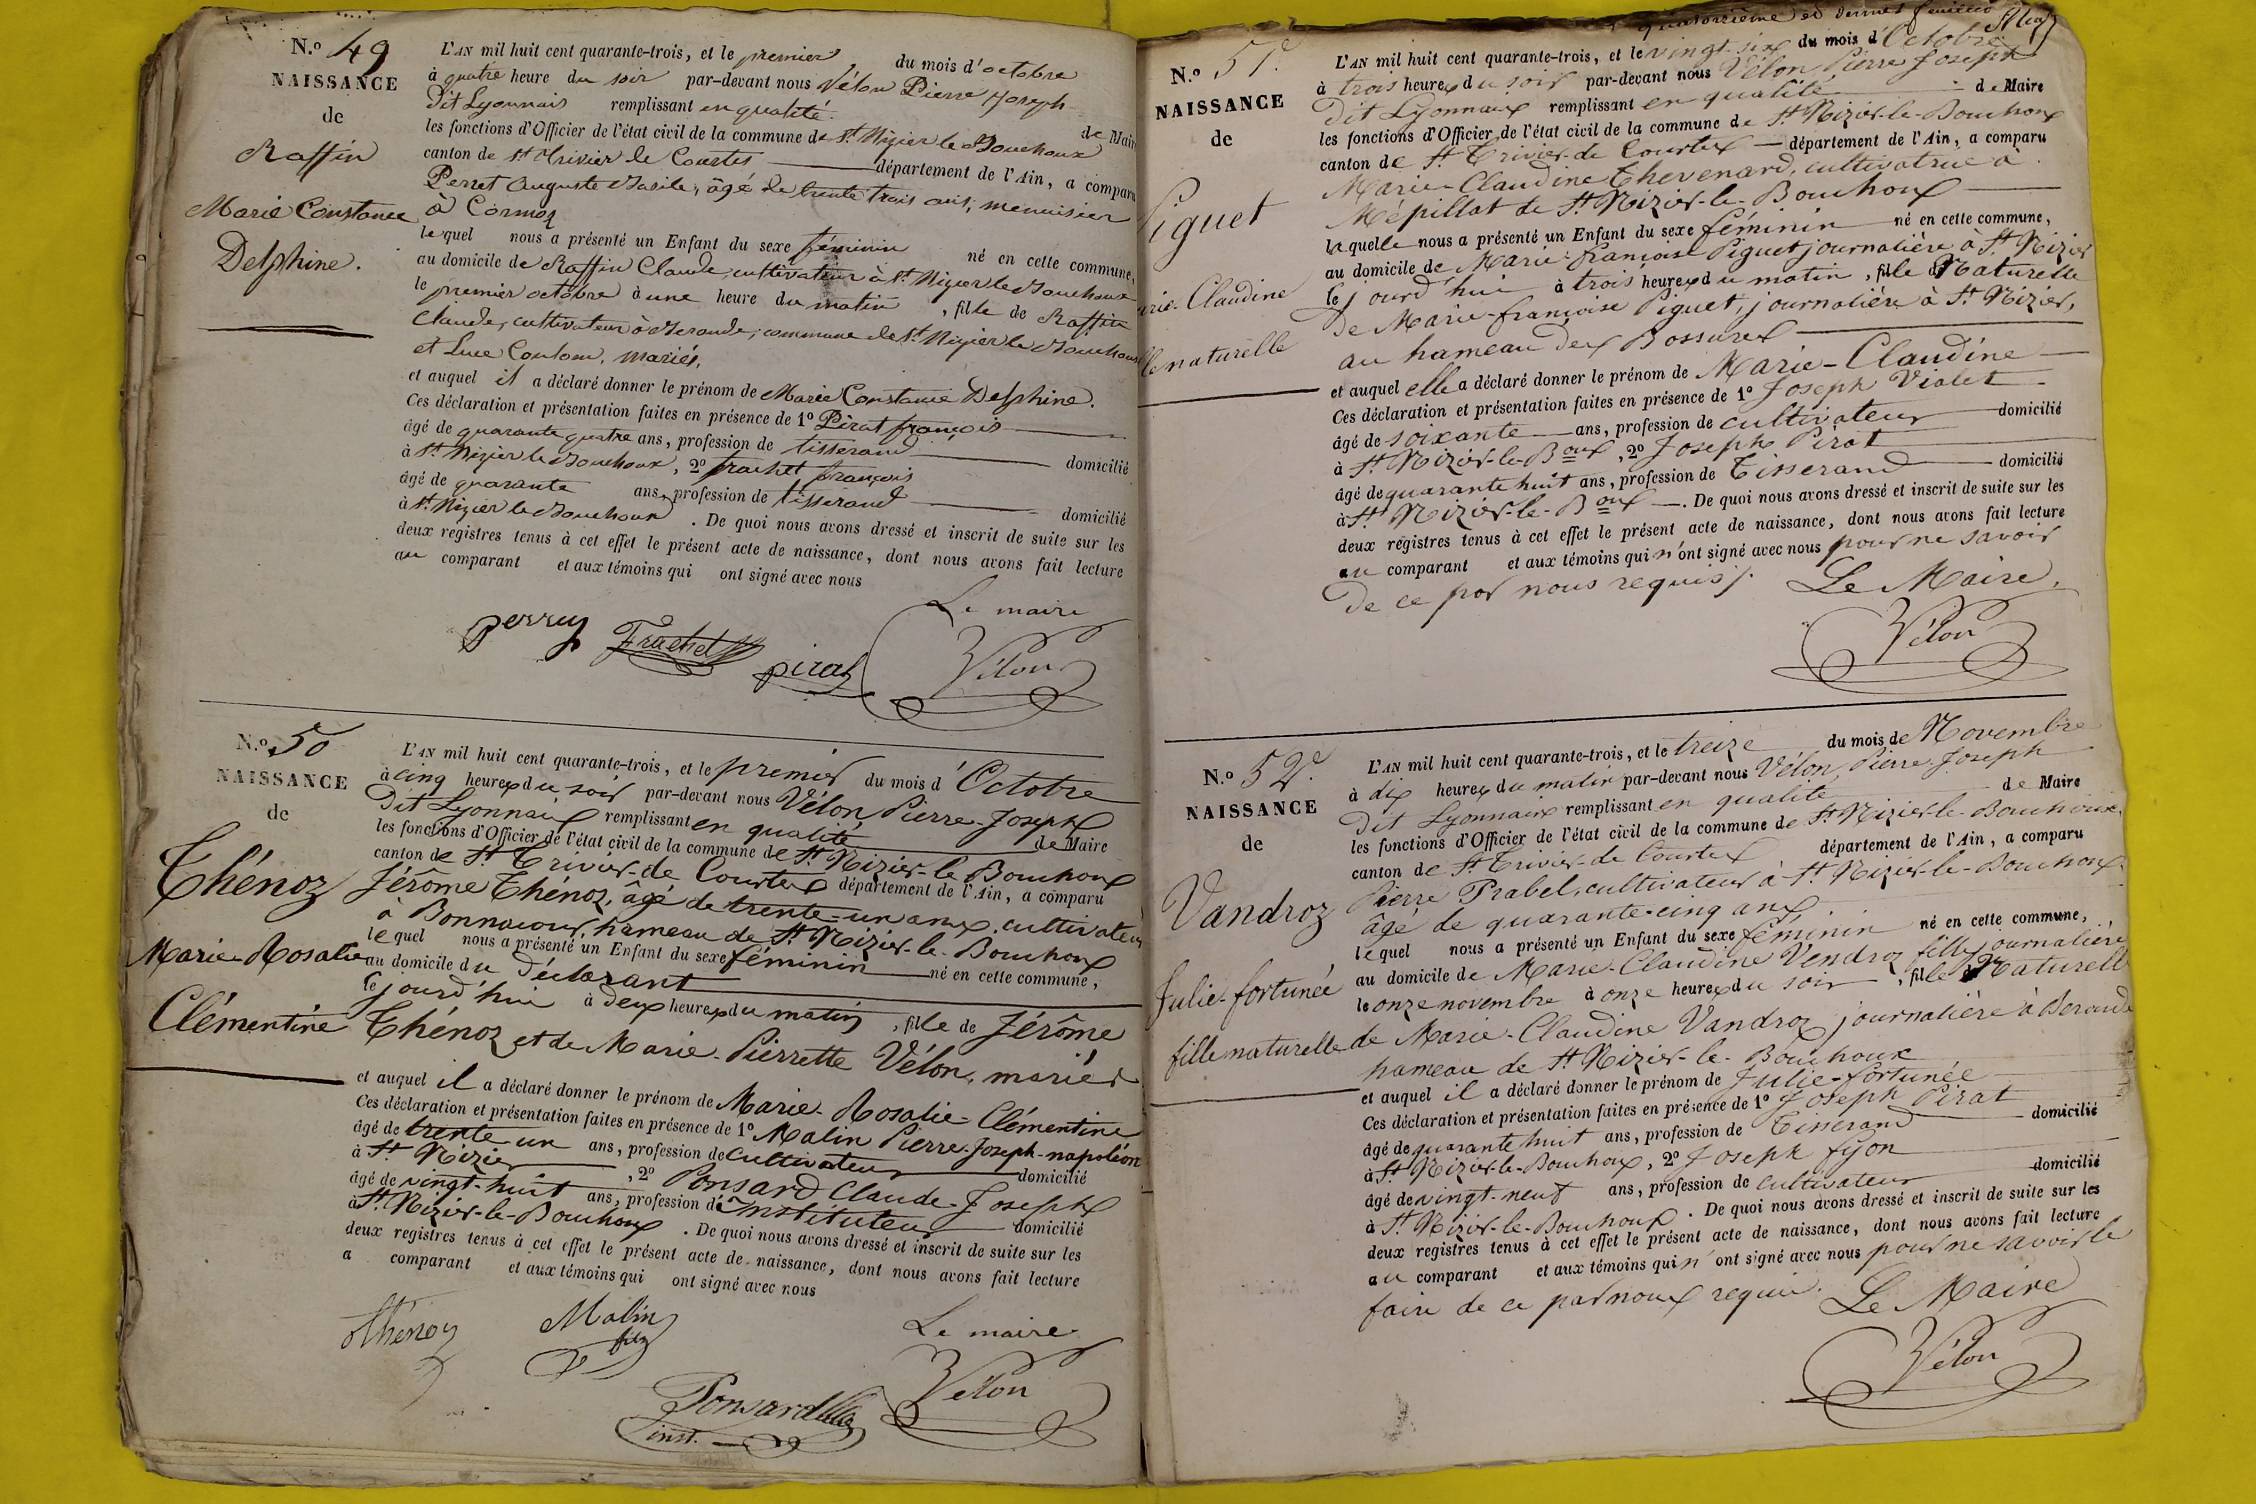 N.o 49
NAISSANCE
de
Raffin
Marie Constance
Delphine.
L'AN mil huit cent quarante-trois, et le premier du mois d'octobre
à quatre heure du soir par-devant nous Vélon Pierre Joseph
dit Lyonnais remplissant en qualité de Maire
les fonctions d'Officier de l'état civil de la commune de St Nizier le Bouchoux
canton de St Trivier de Courtes département de l'Ain, a comparu
Perret Auguste Basile, âgé de trente trois ans, menuisier
à Cormoz
lequel nous a présenté un Enfant du sexe féminin né en cette commune,
au domicile de Raffin Claude, cultivateur à St Nizier le Bouchoux
le premier octobre à une heure du matin, fille de Raffin
Claude, cultivateur à Beraude, commune de St Nizier le Bouchoux
et Luce Coulon, mariés.
et auquel il a déclaré donner le prénom de Marie Constance Delphine.
Ces déclaration et présentation faites en présence de 1o Pirat françois
âgé de quarante quatre ans, profession de tisserand domicilié
à St Nizier le Bouchoux, 2o frachet françois
âgé de quarante ans, profession de tisserand domicilié
à St Nizier le Bouchoux. De quoi nous avons dressé et inscrit de suite sur les
deux registres tenus à cet effet le présent acte de naissance, dont nous avons fait lecture
au comparant et aux témoins qui ont signé avec nous
Le maire
Frachet pirat Vélon
N.o 50
NAISSANCE
de
Thénoz
Marie-Rosalie
Clémentine
L'AN mil huit cent quarante-trois, et le premier du mois d'Octobre
à cinq heures du soir par-devant nous Vélon, Pierre-Joseph
Dit Lyonnais remplissant en qualité de Maire
les fonctions d'Officier de l'état civil de la commune de St Nizier-le-Bouchoux
canton de St Trivier-de Courtes département de l'Ain, a comparu
Jérôme Thénoz, âgé de trente-un ans, cultivateur
à Bonnacour, hameau de St Nizier-le-Bouchoux
lequel nous a présenté un Enfant du sexe féminin né en cette commune,
au domicile du Déclarant
le jourd'hui à Deux heures du matin, fille de Jérôme
Thénoz et de Marie-Pierrette Vélon, mariés
et auquel il a déclaré donner le prénom de Marie-Rosalie-Clémentine
Ces déclaration et présentation faites en présence de 1o Malin Pierre-Joseph-napoléon
âgé de trente-un ans, profession de cultivateur domicilié
à St Nizier, 2o Ponsard Claude-Joseph
âgé de vingt-huit ans, profession d'Instituteur domicilié
à St Nizier-le-Bouchoux. De quoi nous avons dressé et inscrit de suite sur les
deux registres tenus à cet effet le présent acte de naissance, dont nous avons fait lecture
a comparant et aux témoins qui ont signé avec nous
Thénoz Malin fils Le maire
Ponsard inst. Vélon
quatorzième et dernier feuillet
N.o 51e
NAISSANCE
de
Piguet
Marie-Claudine
fille naturelle
L'AN mil huit cent quarante-trois, et le vingt-six du mois d'Octobre
à trois heures du soir par-devant nous Vélon Pierre Joseph
Dit Lyonnais remplissant en qualité de Maire
les fonctions d'Officier de l'état civil de la commune de St Nizier-le-Bouchoux
canton de St Trivier-de Courtes département de l'Ain, a comparu
Marie-Claudine Thevenard, cultivatrice à
Mépillat de St Nizier-le-Bouchoux
laquelle nous a présenté un Enfant du sexe féminin né en cette commune,
au domicile de Marie-françoise Piguet journalière à St Nizier
le jourd'hui à trois heures du matin, fille Naturelle
de Marie-françoise Piguet, journalière à St Nizier,
au hameau des Bossures
et auquel elle a déclaré donner le prénom de Marie-Claudine
Ces déclaration et présentation faites en présence de 1o Joseph Violet
âgé de soixante ans, profession de cultivateur domicilié
à St Nizier-le-Boux, 2o Joseph Pirat
âgé de quarante huit ans, profession de Tisserand domicilié
à St Nizier-le-Boux. De quoi nous avons dressé et inscrit de suite sur les
deux registres tenus à cet effet le présent acte de naissance, dont nous avons fait lecture
au comparant et aux témoins qui n'ont signé avec nous pour ne savoir
De ce par nous requis.
Le Maire,
Vélon
N.o 52e
NAISSANCE
de
Vandroz
Julie-fortunée
fille naturelle
L'AN mil huit cent quarante-trois, et le treize du mois de Novembre
à dix heures du matin par-devant nous Vélon, Pierre-Joseph
Dit Lyonnais remplissant en qualité de Maire
les fonctions d'Officier de l'état civil de la commune de St Nizier-le-Bouchoux,
canton de St Trivier-de Courtes département de l'Ain, a comparu
Pierre Prabel, cultivateur à St Nizier-le-Bouchoux
âgé de quarante-cinq ans
lequel nous a présenté un Enfant du sexe féminin né en cette commune,
au domicile de Marie-Claudine Vendroz fille journalière
le onze novembre à onze heures du soir, fille Naturelle
de Marie-Claudine Vandroz journalière à Beraude
hameau de St Nizier-le-Bouchoux
et auquel il a déclaré donner le prénom de Julie-fortunée
Ces déclaration et présentation faites en présence de 1o Joseph Pirat
âgé de quarante huit ans, profession de Tisserand domicilié
à St Nizier-le-Bouchoux, 2o Joseph fyon
âgé de vingt-neuf ans, profession de cultivateur domicilié
à St Nizier-le-Bouchoux. De quoi nous avons dressé et inscrit de suite sur les
deux registres tenus à cet effet le présent acte de naissance, dont nous avons fait lecture
au comparant et aux témoins qui n'ont signé avec nous pour ne savoir le
faire de ce par nous requis.
Le Maire
Vélon